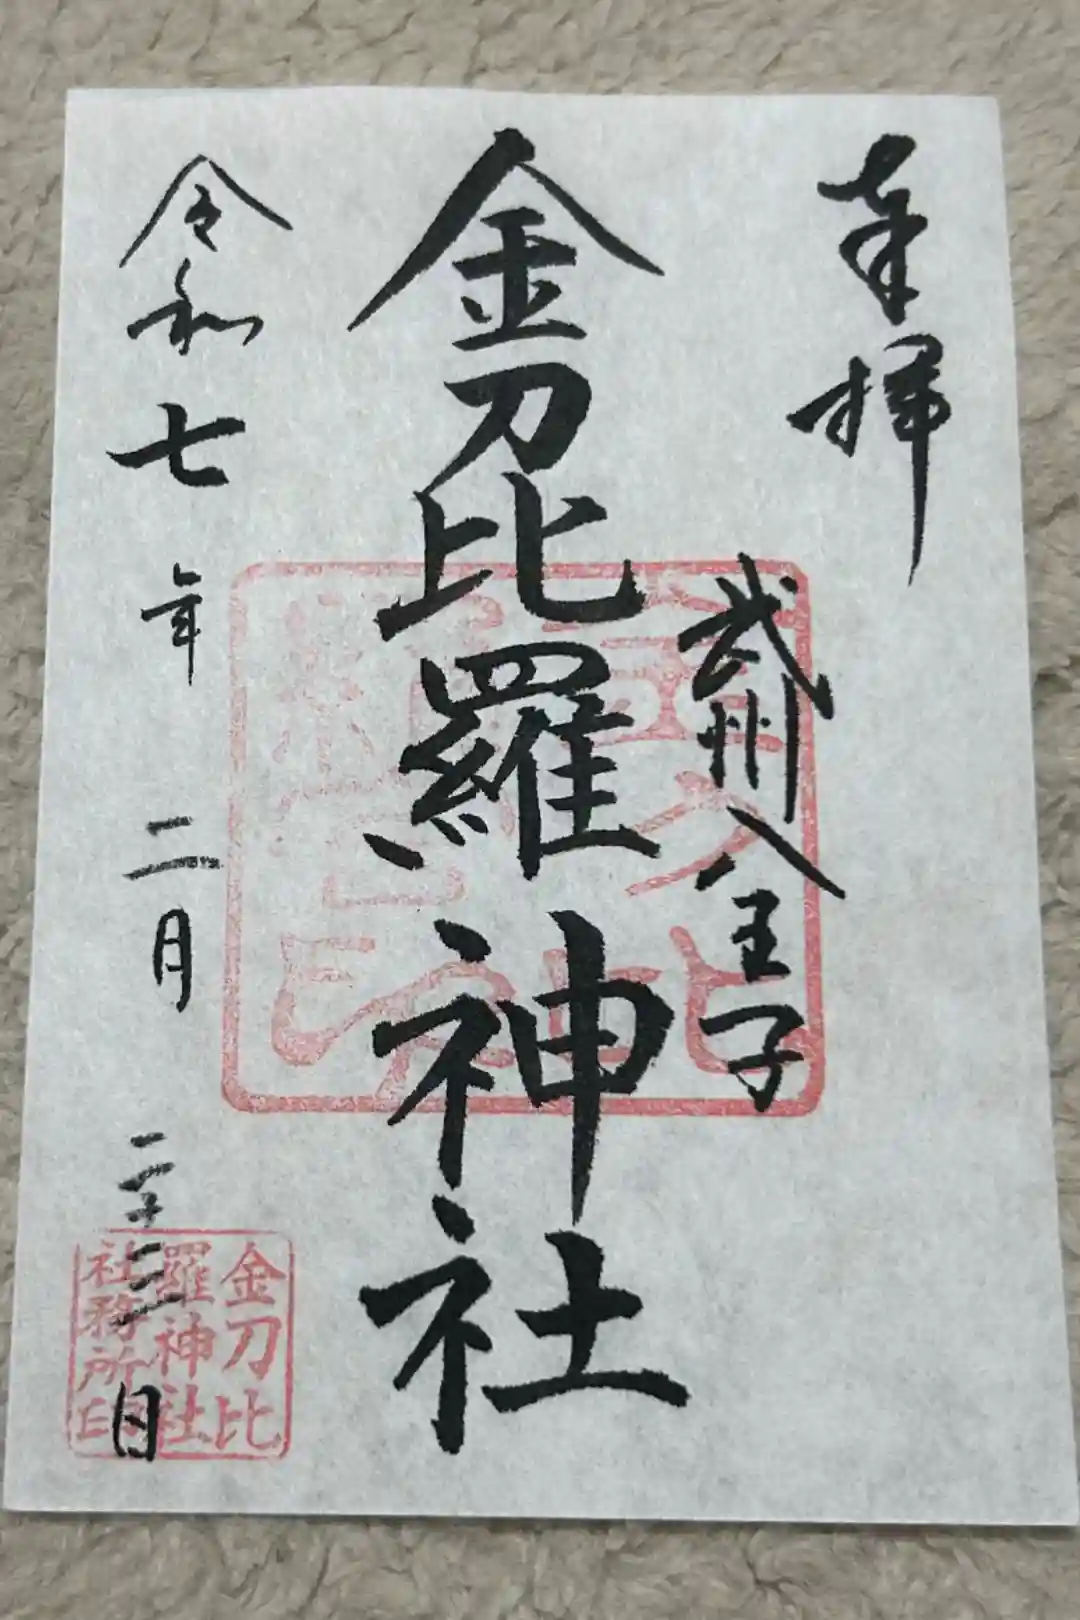 奉拝
武州八王子
金刀比羅神社
令和七年二月二十二日
金刀比
羅神社
社務所印